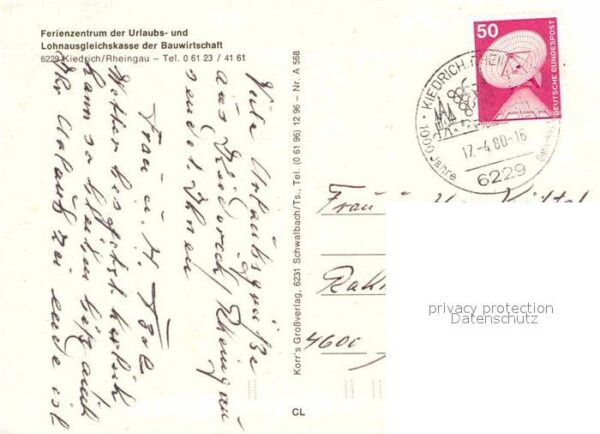 Ferienzentrum der Urlaubs- und
Lohnausgleichskasse der Bauwirtschaft
6229 Kiedrich/Rheingau – Tel. 0 61 23 / 41 61
50
DEUTSCHE BUNDESPOST
KIEDRICH, RHEIN
1000 Jahre
17.-4.80-16
6229
Viele Urlaubsgrüße
aus Kiedrich/Rheingau
sendet Ihnen
Frau u. H.
Wetter bis jetzt herrlich
kann so bleiben bis auch
Ihr Urlaub zu ende ist
Korr's Großverlag, 6231 Schwalbach/Ts., Tel. (0 61 96) 12 96 – Nr. A 568
CL
Frau
4600
privacy protection
Datenschutz